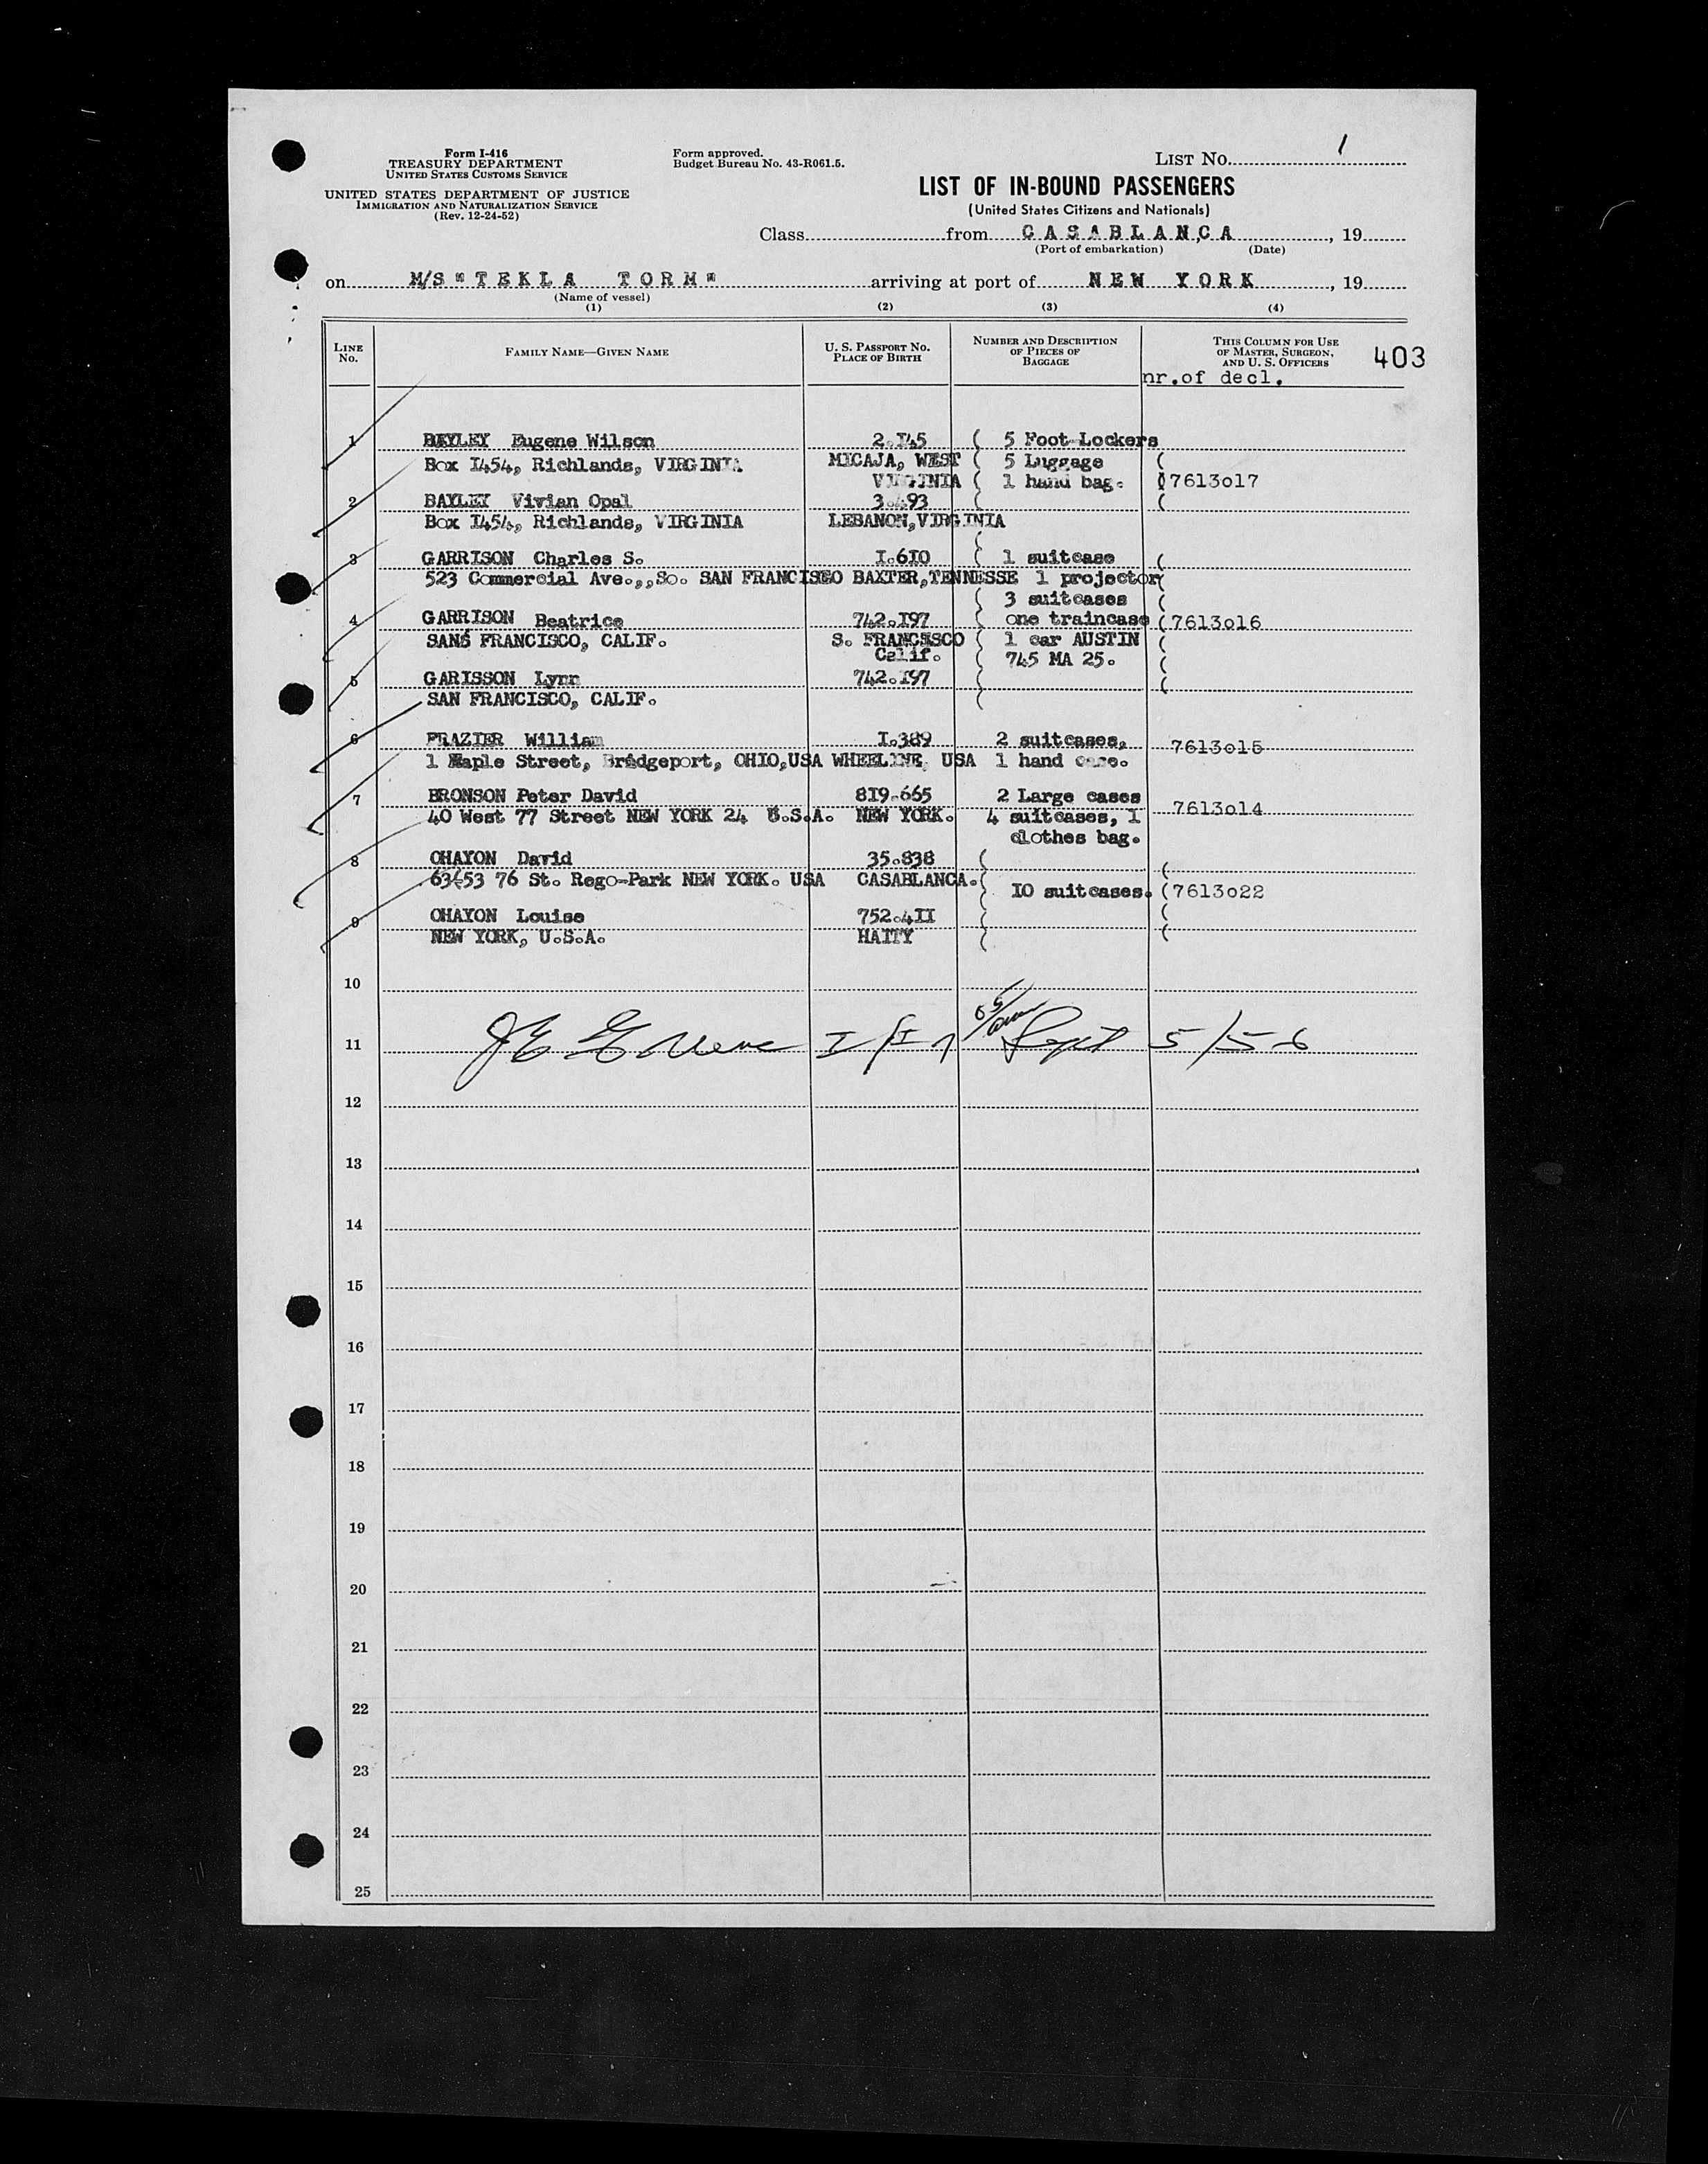 Form I-416
TREASURY DEPARTMENT
UNITED STATES CUSTOMS SERVICE
UNITED STATES DEPARTMENT OF JUSTICE
IMMIGRATION AND NATURALIZATION SERVICE
(Rev. 12-24-52)
Form approved.
Budget Bureau No. 43-R061.5.
LIST No. 1
LIST OF IN-BOUND PASSENGERS
(United States Citizens and Nationals)
Class from CASABLANCA, 19
(Port of embarkation) (Date)
on M/S "TEKLA TORM" arriving at port of NEW YORK, 19
(Name of vessel)
(1) (2) (3) (4)
LINE No. FAMILY NAME—GIVEN NAME U. S. PASSPORT NO. PLACE OF BIRTH NUMBER AND DESCRIPTION OF PIECES OF BAGGAGE THIS COLUMN FOR USE OF MASTER, SURGEON, AND U. S. OFFICERS 403
nr.of decl.
1 BAYLEY Eugene Wilson 2.I45 ( 5 Foot-Lockers
Box I454, Richlands, VIRGINIA MICAJA, WEST ( 5 Luggage (
VIRGINIA ( 1 hand bag. (7613o17
2 BAYLEY Vivian Opal 3.493 ( (
Box I454, Richlands, VIRGINIA LEBANON,VIRGINIA
3 GARRISON Charles S. I.6I0 ( 1 suitcase (
523 Commercial Ave.,,So. SAN FRANCISCO BAXTER,TENNESSE 1 projector(
( 3 suitcases (
4 GARRISON Beatrice 742.I97 ( one traincase (7613o16
SANS FRANCISCO, CALIF. S. FRANCISCO ( 1 car AUSTIN (
Calif. ( 745 MA 25. (
5 GARISSON Lynn 742.I97 ( (
SAN FRANCISCO, CALIF. (
6 FRAZIER William I.389 2 suitcases, 7613o15
1 Maple Street, Bridgeport, OHIO,USA WHEELINE USA 1 hand case.
7 BRONSON Peter David 8I9.665 2 Large cases 7613o14
40 West 77 Street NEW YORK 24 U.S.A. NEW YORK. 4 suitcases, 1
clothes bag.
8 OHAYON David 35.838 ( (
63-53 76 St. Rego-Park NEW YORK. USA CASABLANCA. ( I0 suitcases. (7613o22
9 OHAYON Louise 752.4II ( (
NEW YORK, U.S.A. HAITY ( (
10
11 Sept 5/56
12
13
14
15
16
17
18
19
20
21
22
23
24
25